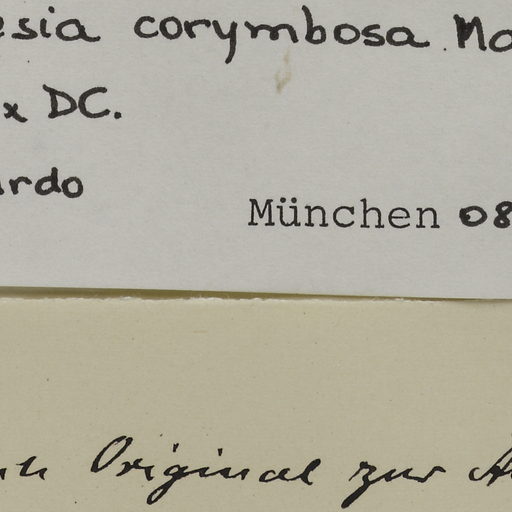 esia corymbosa Mo
x DC.
ardo
München 08
Original zur A